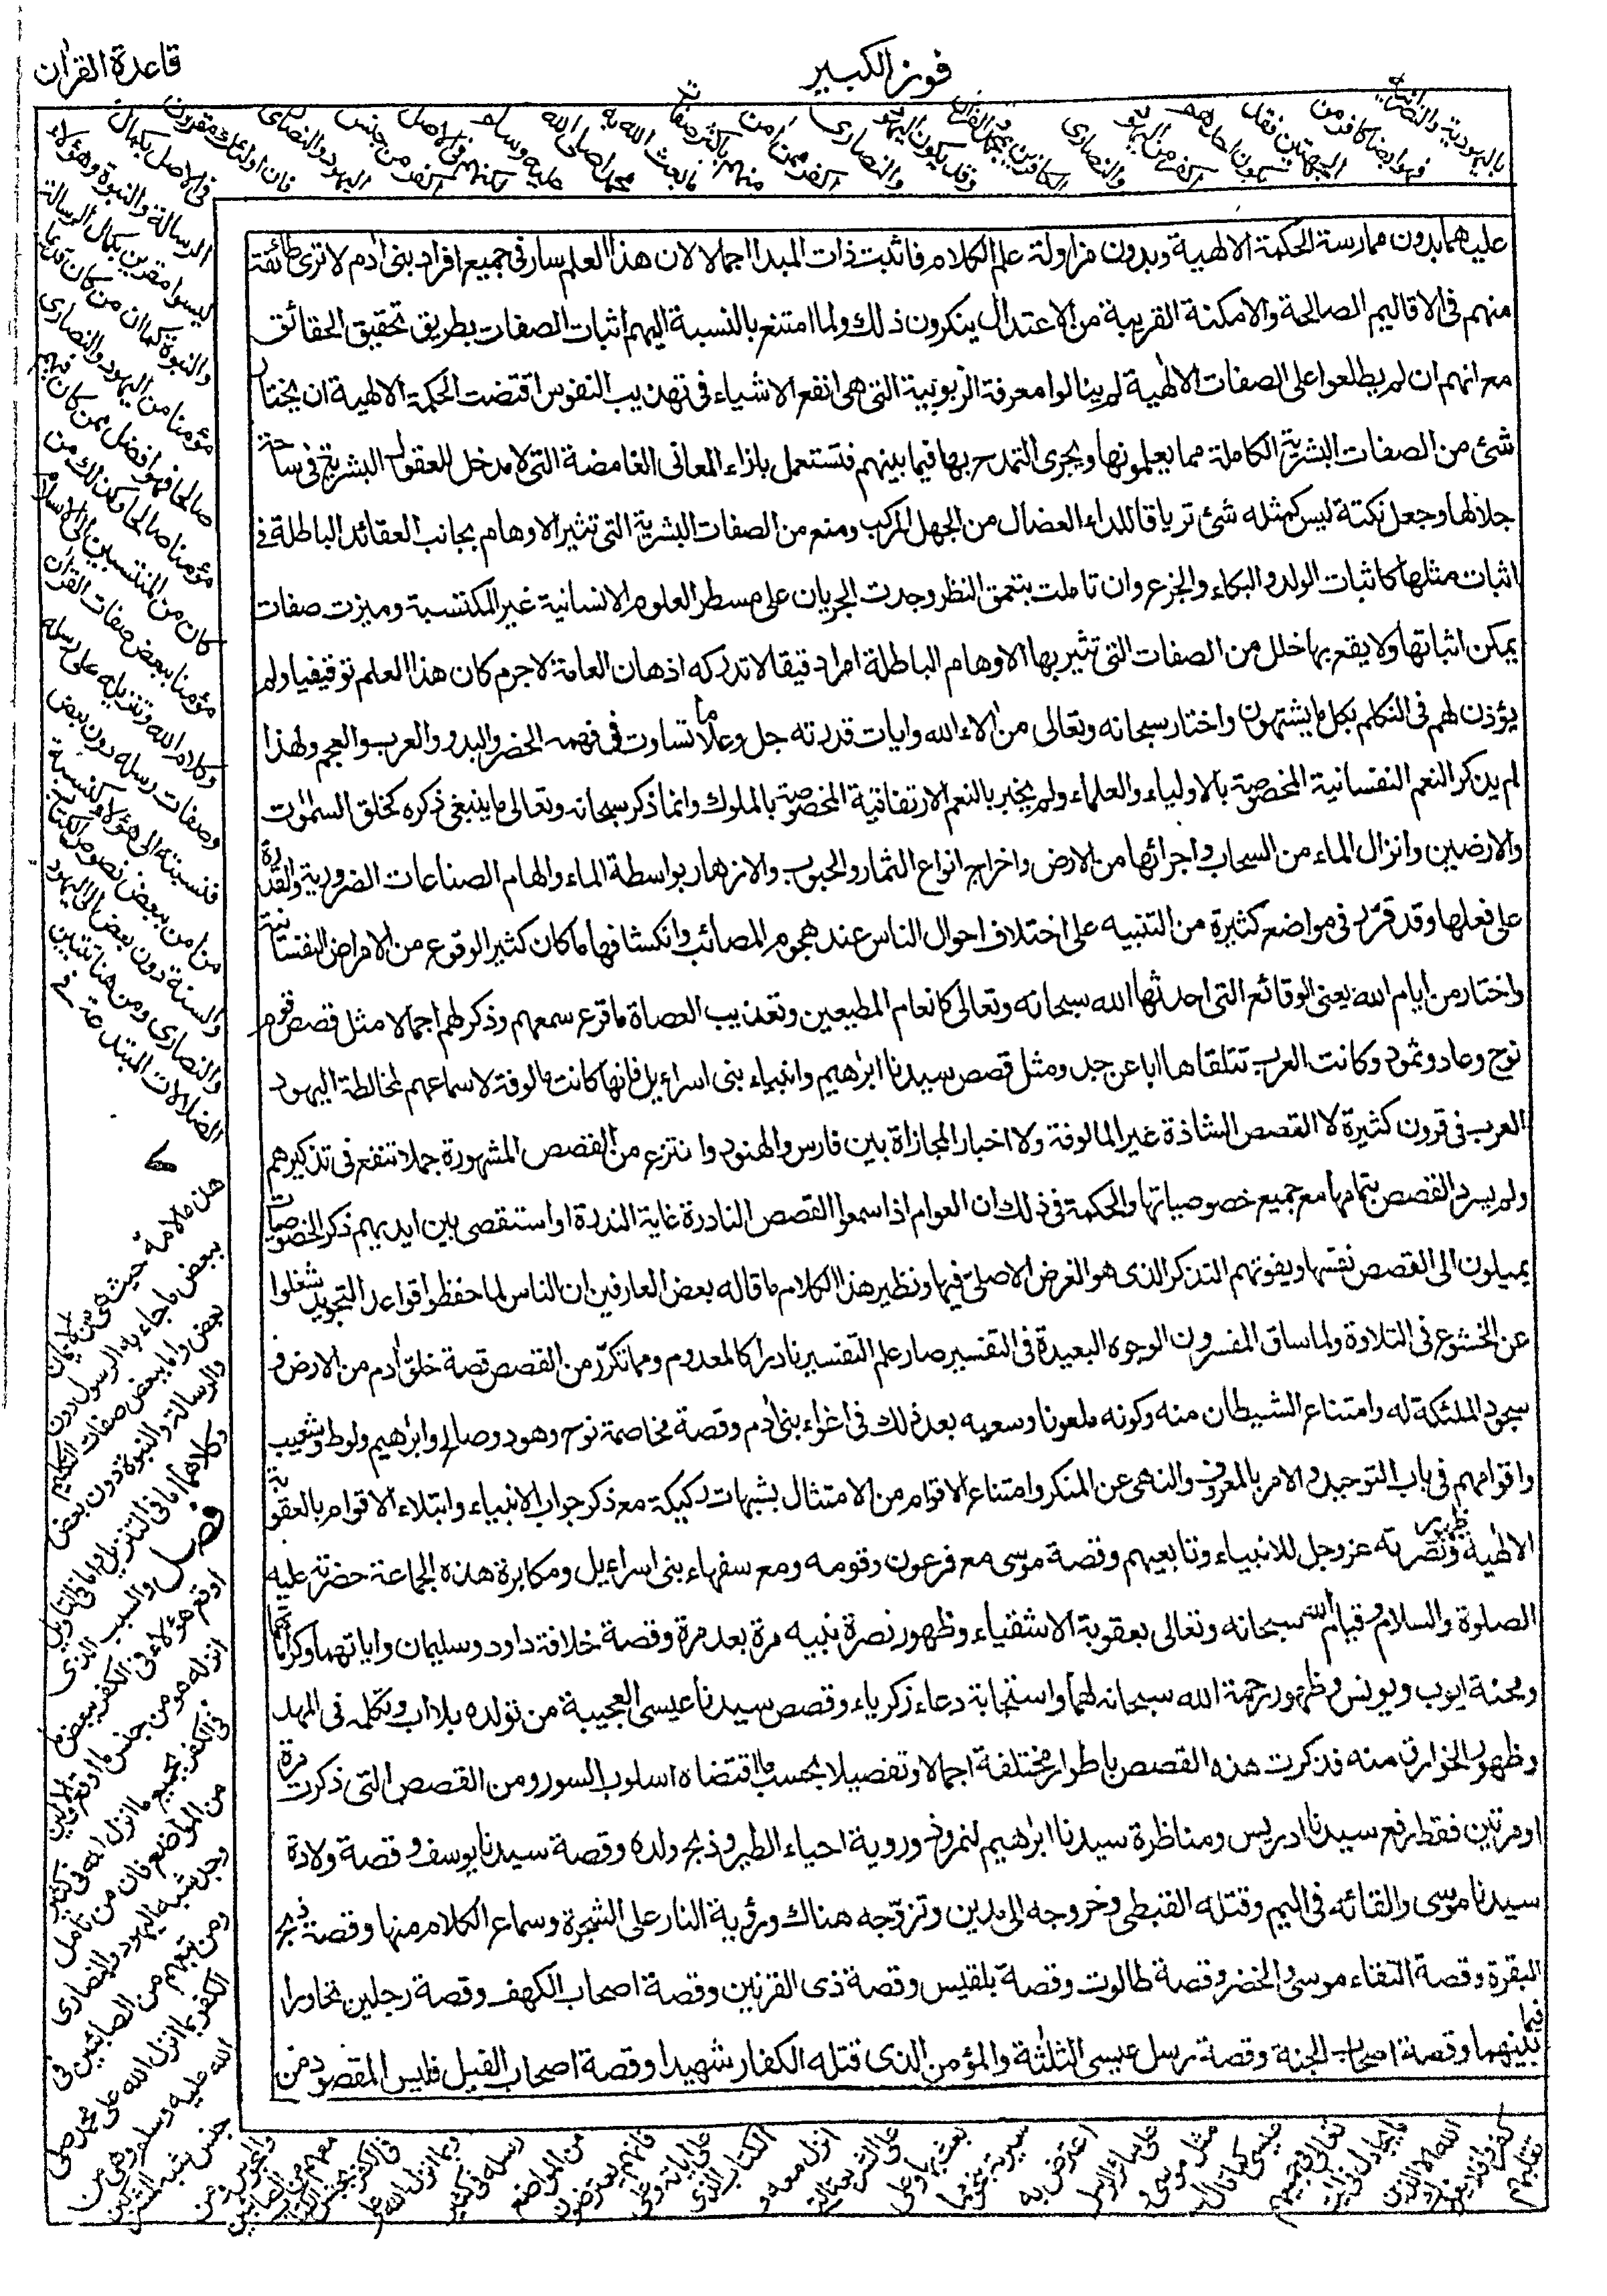 فوز الكبير
قاعدة القران
عليهما بدون ممارسة الحكمة الالهية وبدون مزاولة علم الكلام فاثبت ذات المبدا اجمالا لان هذا العلم سار فى جميع افراد بنى ادم لا ترى طائفة
منهم فى الاقاليم الصالحة والامكنة القريبة من الاعتدال ينكرون ذلك ولما امتنع بالنسبة اليهم اثبات الصفات بطريق تحقيق الحقائق
مع انهم ان لم يطلعوا على الصفات الالهية لم ينالوا معرفة الربوبية التى هى انفع الاشياء فى تهذيب النفوس اقتضت الحكمة الالهية ان يختار
شئ من الصفات البشرية الكاملة مما يعلمونها ويجرى التمدح بها فيما بينهم فتستعمل بازاء المعانى الغامضة التى لا مدخل للعقول البشرية فى ساحة
جلالها وجعل نكتة ليس كمثله شئ ترياقا للداء العضال من الجهل المركب ومنع من الصفات البشرية التى تثير الاوهام بجانب العقائد الباطلة فى
اثبات مثلها كاثبات الولد والبكاء والجزع وان تاملت بتعمق النظر وجدت الجريان على مسطر العلوم الانسانية غير المكتسبة وميزت صفات
يمكن اثباتها ولا يقع بها خلل من الصفات التى تثير بها الاوهام الباطلة امرا دقيقا لا تدركه اذهان العامة لا جرم كان هذا العلم توقيفيا ولم
يؤذن لهم فى التكلم بكل ما يشتهون واختار سبحانه وتعالى من الاء الله وايات قدرته جل وعلا ما تساوت فى فهمه الحضر والبدو والعرب والعجم ولهذا
لم يذكر النعم النفسانية المخصوصة بالاولياء والعلماء ولم يخبر بالنعم الارتفاقية المخصوصة بالملوك وانما ذكر سبحانه وتعالى ما ينبغى ذكره كخلق السموات
والارضين وانزال الماء من السحاب واجرائها من الارض واخراج انواع الثمار والحبوب والازهار بواسطة الماء والهام الصناعات الضرورية والقدرة
على فعلها وقد قرر فى مواضع كثيرة من التنبيه على اختلاف احوال الناس عند هجوم المصائب وانكشافها ما كان كثير الوقوع من الامراض النفسانية
واختار من ايام الله يعنى الوقائع التى احدثها الله سبحانه وتعالى كانعام المطيعين وتعذيب العصاة ما قرع سمعهم وذكر لهم اجمالا مثل قصص قوم
نوح وعاد وثمود وكانت العرب تتلقاها ابا عن جد ومثل قصص سيدنا ابرهيم وانبياء بنى اسراءيل فانها كانت مالوفة لاسماعهم لمخالطة اليهود
العرب فى قرون كثيرة لا القصص الشاذة غير المالوفة ولا اخبار المجازاة بين فارس والهنود وانتزع من القصص المشهورة جملا تنفع فى تذكيرهم
ولم يسرد القصص بتمامها مع جميع خصوصياتها والحكمة فى ذلك ان العوام اذا سمعوا القصص النادرة غاية الندرة او استقصى بين ايديهم ذكر الخصوصيات
يميلون الى القصص نفسها ويفوتهم التذكر الذى هو الغرض الاصلى فيها ونظير هذا الكلام ما قاله بعض العارفين ان الناس لما حفظوا قواعد التجويد شغلوا
عن الخشوع فى التلاوة ولما ساق المفسرون الوجوه البعيدة فى التفسير صار علم التفسير نادرا كالمعدوم ومما تكرر من القصص قصة خلق ادم من الارض و
سجود الملئكة له وامتناع الشيطان منه وكونه ملعونا وسعيه بعد ذلك فى اغواء بنى ادم وقصة مخاصمة نوح وهود وصالح وابرهيم ولوط وشعيب
واقوامهم فى باب التوحيد والامر بالمعروف والنهى عن المنكر وامتناع الاقوام من الامتثال بشبهات ركيكة مع ذكر جواب الانبياء وابتلاء الاقوام بالعقوبة
الالهية وظهور نصرته عز وجل للانبياء وتابعيهم وقصة موسى مع فرعون وقومه ومع سفهاء بنى اسراءيل ومكابرة هذه الجماعة حضرته عليه
الصلوة والسلام وقيام الله سبحانه وتعالى بعقوبة الاشقياء وظهور نصرة نبيه مرة بعد مرة وقصة خلافة داود وسليمان واياتهما وكراماتهما
ومحنة ايوب ويونس وظهور رحمة الله سبحانه لهما واستجابة دعاء زكرياء وقصص سيدنا عيسى العجيبة من تولده بلا اب وتكلمه فى المهد
وظهور الخوارق منه فذكرت هذه القصص باطوار مختلفة اجمالا وتفصيلا بحسب ما اقتضاه اسلوب السور ومن القصص التى ذكرت مرة
او مرتين فقط رفع سيدنا ادريس ومناظرة سيدنا ابرهيم لنمرود وروية احياء الطير وذبح ولده وقصة سيدنا يوسف وقصة ولادة
سيدنا موسى والقائه فى اليم وقتله القبطى وخروجه الى مدين وتزوجه هناك ورؤية النار على الشجرة وسماع الكلام منها وقصة ذبح
البقرة وقصة التقاء موسى والخضر وقصة طالوت وقصة بلقيس وقصة ذى القرنين وقصة اصحاب الكهف وقصة رجلين تحاورا
فيما بينهما وقصة اصحاب الجنة وقصة رسل عيسى الثلثة والمؤمن الذى قتله الكفار شهيدا وقصة اصحاب الفيل فليس المقصود من
فى الاصل بكمال
الرسالة والنبوة وهؤلاء
ليسوا مقرين بكمال الرسالة
والنبوة كما ان من كان قديما
مؤمنا من اليهود والنصارى
صالحا فهو افضل ممن كان فيهم
مؤمنا صالحا وكذلك من
كان من المنتسبين الى الاسلام
مؤمنا ببعض صفات القران
وكلام الله وتنزيله على رسله
وصفات رسله دون بعض
فنسبته الى هؤلاء كنسبة
من امن ببعض نصوص الكتاب
والسنة دون بعض الى اليهود
والنصارى ومن هنا تتبين
الضلالات المبتدعة فى
هذه الامة حيث هى من الايمان
ببعض ما جاء به الرسول دون
بعض واما ببعض صفات التكليم
والرسالة والنبوة دون بعض
وكلاهما اما فى التنزيل واما فى التاويل
فصل والسبب الذى
اوقع هؤلاء فى الكفر ببعض
انزله هو من جنس ما اوقع الاولين
فى الكفر بجميع ما انزل الله فى كثير
من المواضع فان من تامل
وجد شبه اليهود والنصارى
ومن تبعهم من الصابئين فى
الكفر بما انزل الله على محمد صلى
الله عليه وسلم وهى من
جنس شبه المشركين